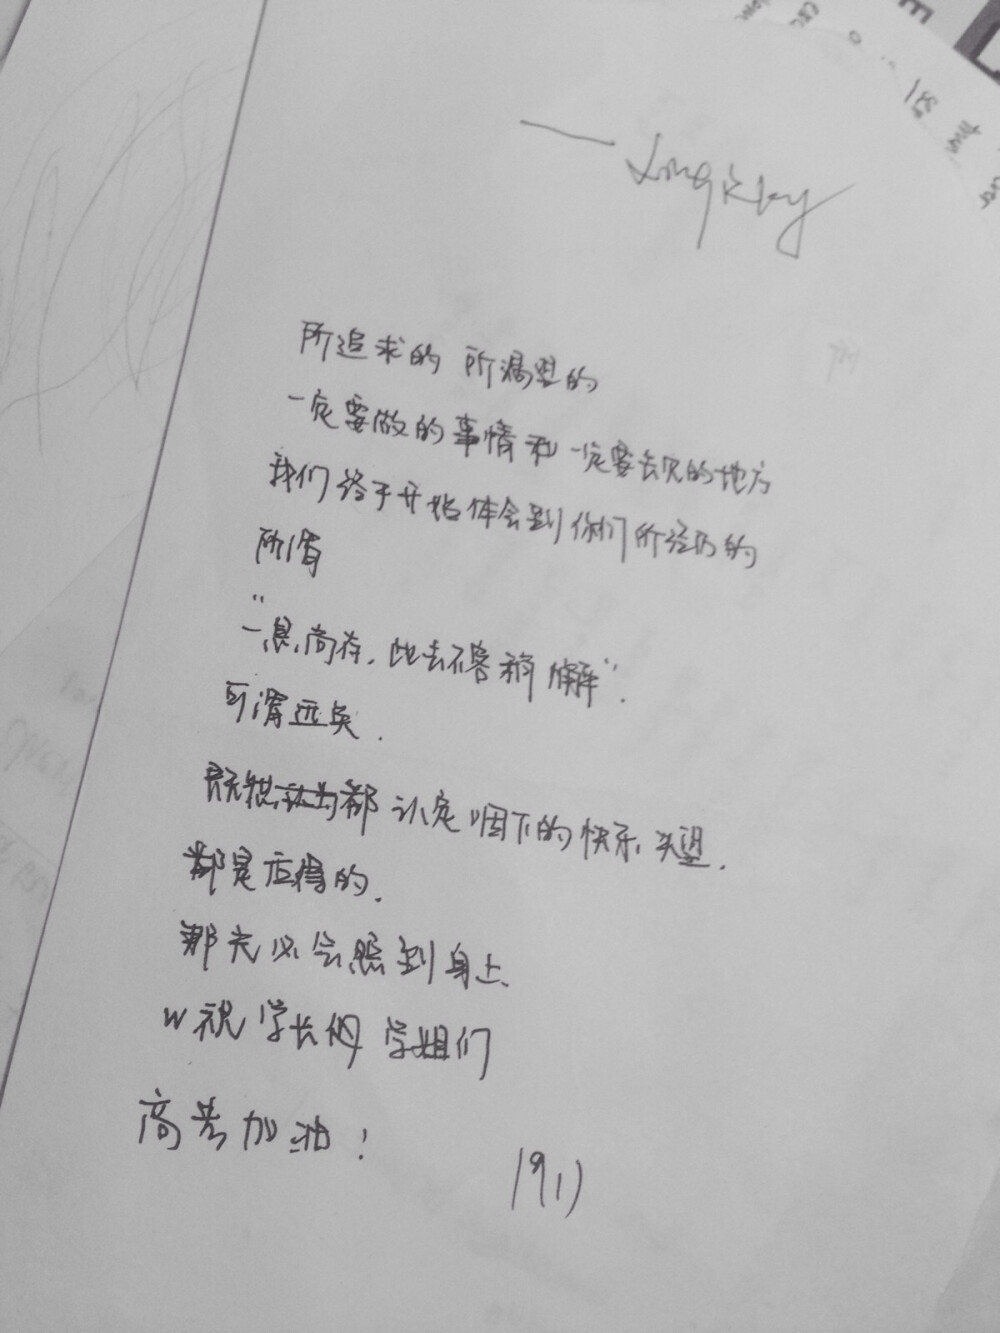 所追求的 所渴望的
一定要做的事情和一定要去见的地方
我们终于开始体会到你们所经历的
所谓
“一息尚存，此去不容稍懈”.
可谓远矣.
既然都认定咽下的快乐、失望.
都是应得的.
那光必会照到身上.
W祝学长们 学姐们
高考加油！
1911